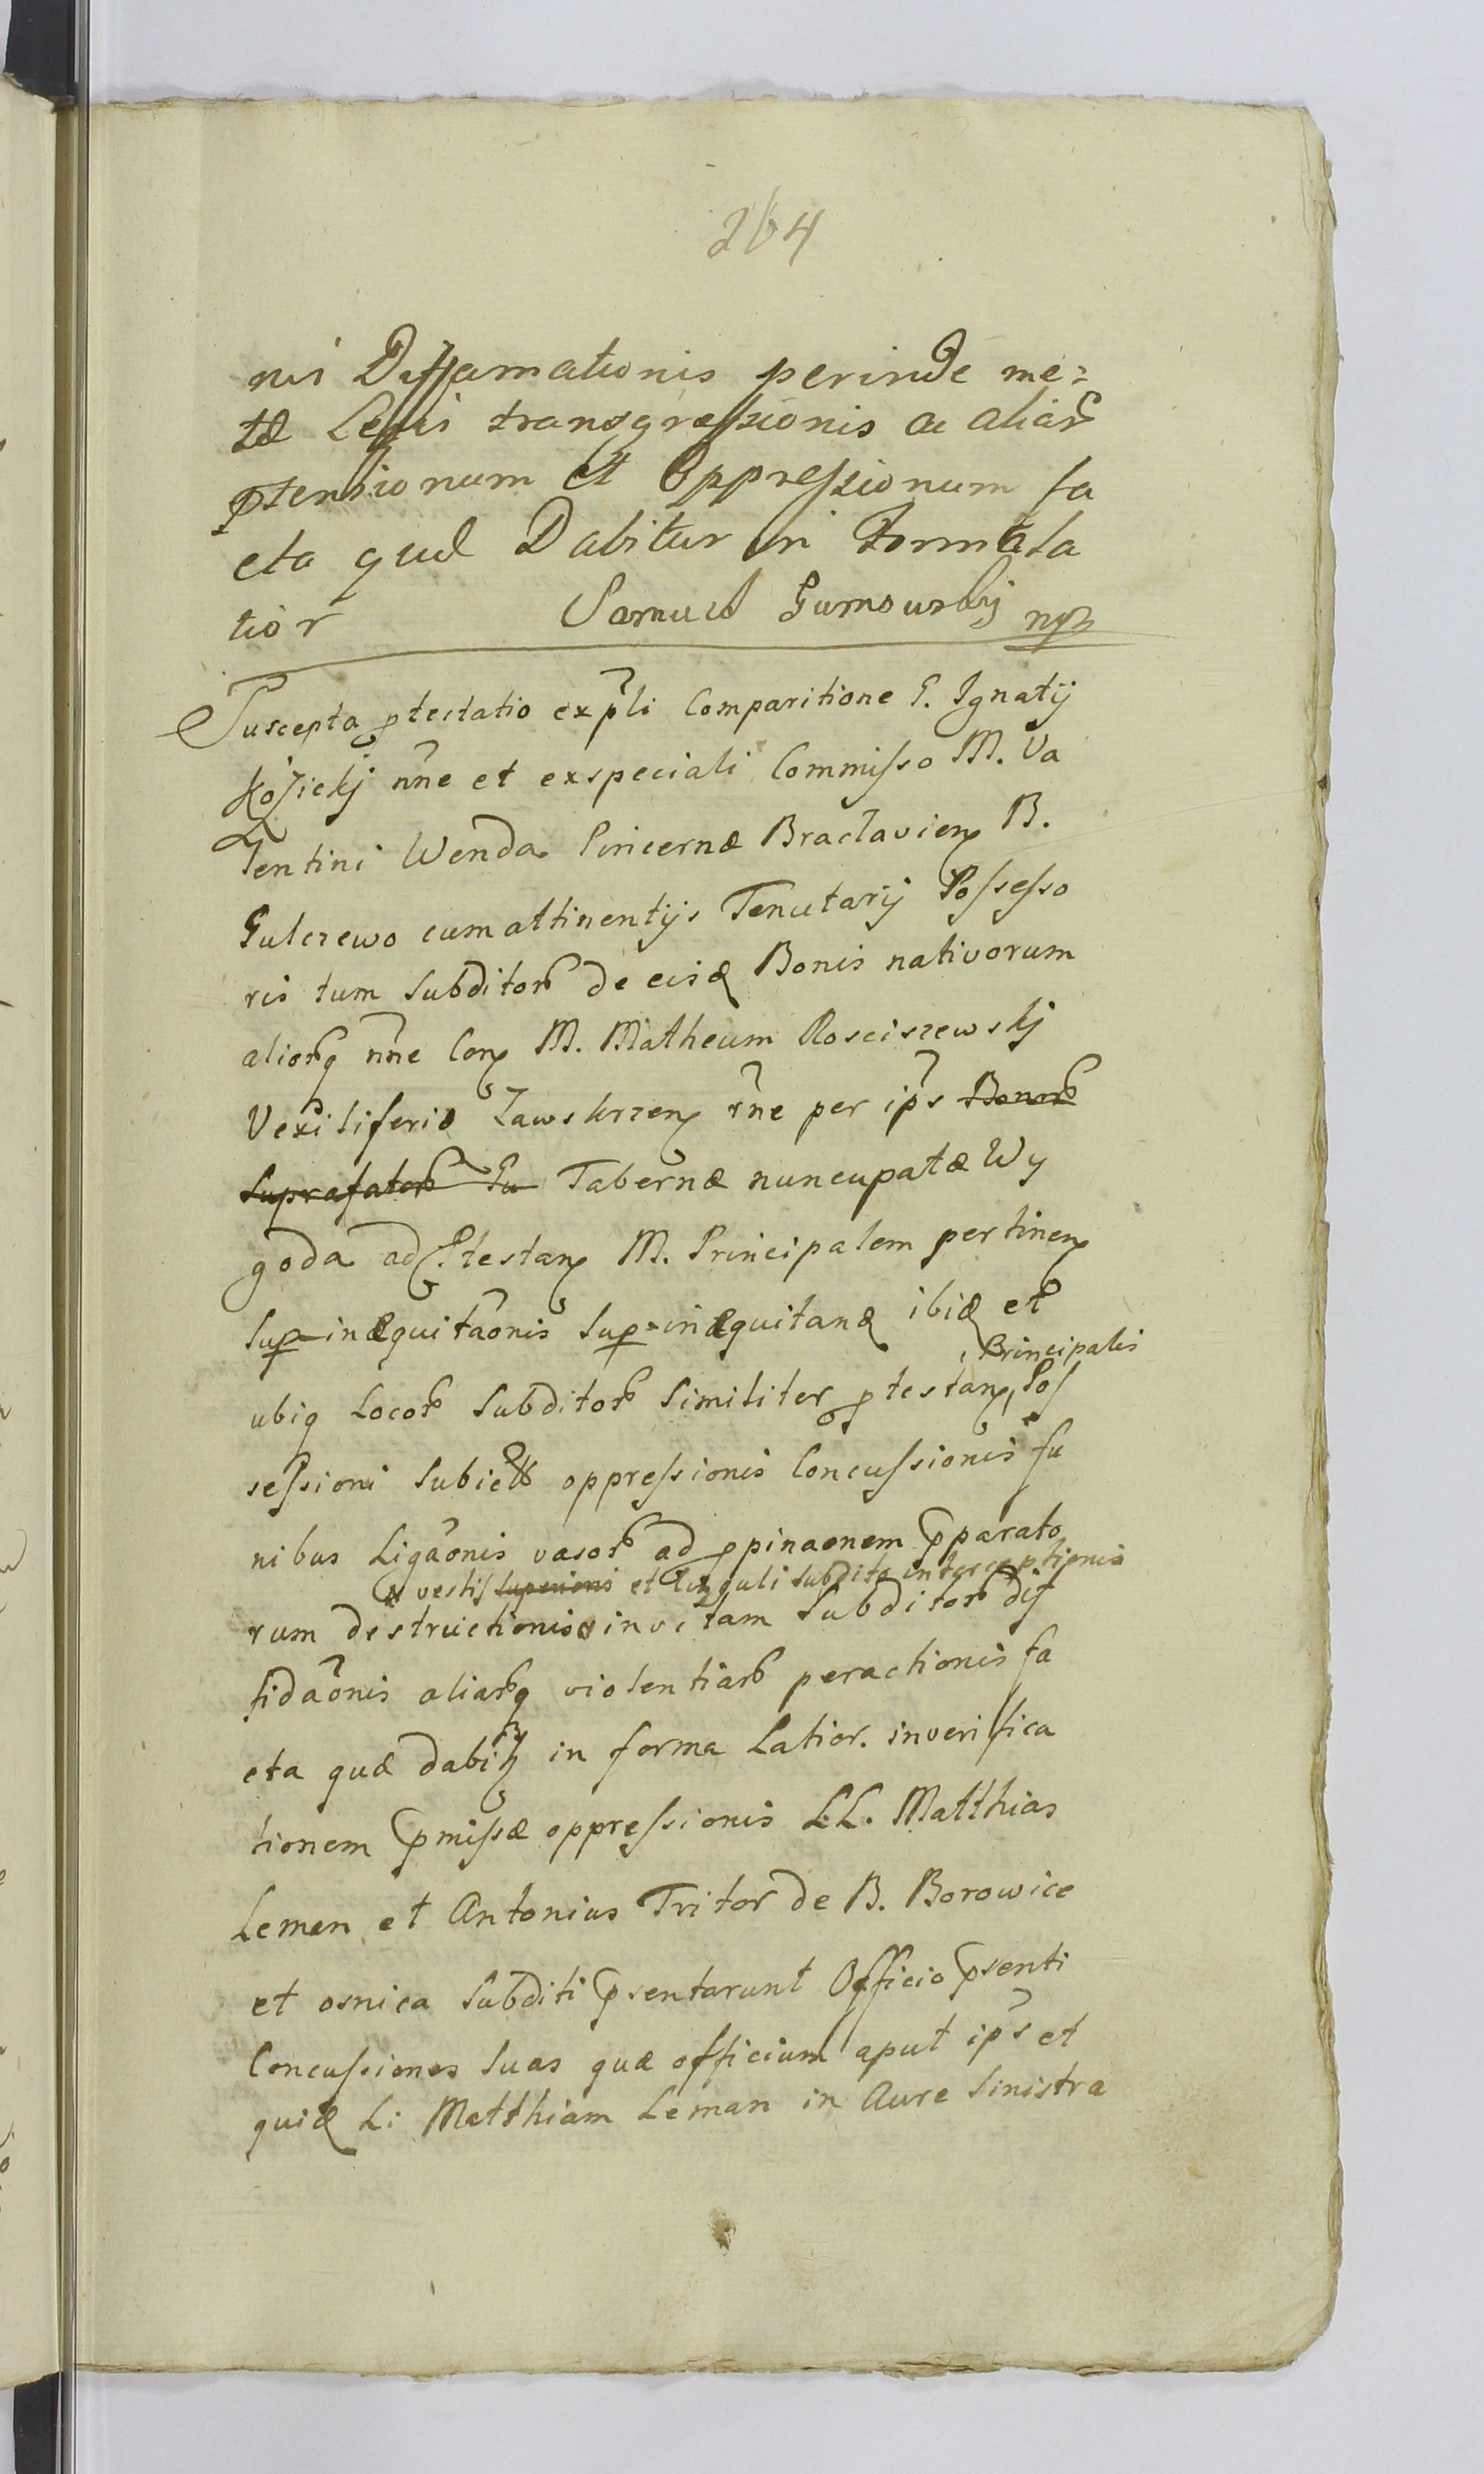 264
nis Diffamationis perinde me=
tæ Legis transgressionis ac aliar
ptensionum et Oppressionum fa
cta quæ Dabitur in Forma la
tior Samuel Gumowskij mp
Suscepta ptestatio ex pli Comparitione G. Ignatij
Kozickj nne et ex speciali Commisso M. Va
lentini Wenda Pincernæ Braclavien B.
Gulczewo cum attinentijs Tenutarij Possesso
ris tum Subditor de eisd Bonis nativorum
aliorq nne Con M. Matheum Rosciszewskj
Vexiliferio Zawskrzen rne per ips Bonor
suprafator Gu Tabernæ nuncupatæ Wy
goda ad Ptestan M. Principalem pertinen
Sup-inæquitaonis Sup=inæquitand ibid et
ubiq Locor Subditor Similiter ptestan, Principalis Pos
sessioni Subiect oppressionis Concussionis fu
nibus Ligaonis vasor ad ppinaonem pparato
vestis superioris et Cinguli subdito interceptionis
rum destructionis in vitam Subditor dif
fidaonis aliarq violentiar peractionis fa
cta quæ dabitur in forma Latior. in verifica
tionem pmissæ oppressionis LL. Matthias
Leman et Antonius Tritor de B. Borowice
et osnica Subditi psentarunt Officio psenti
Concussiones suas quæ officium aput ips et
quid Li Matthiam Leman in Aure Sinistra